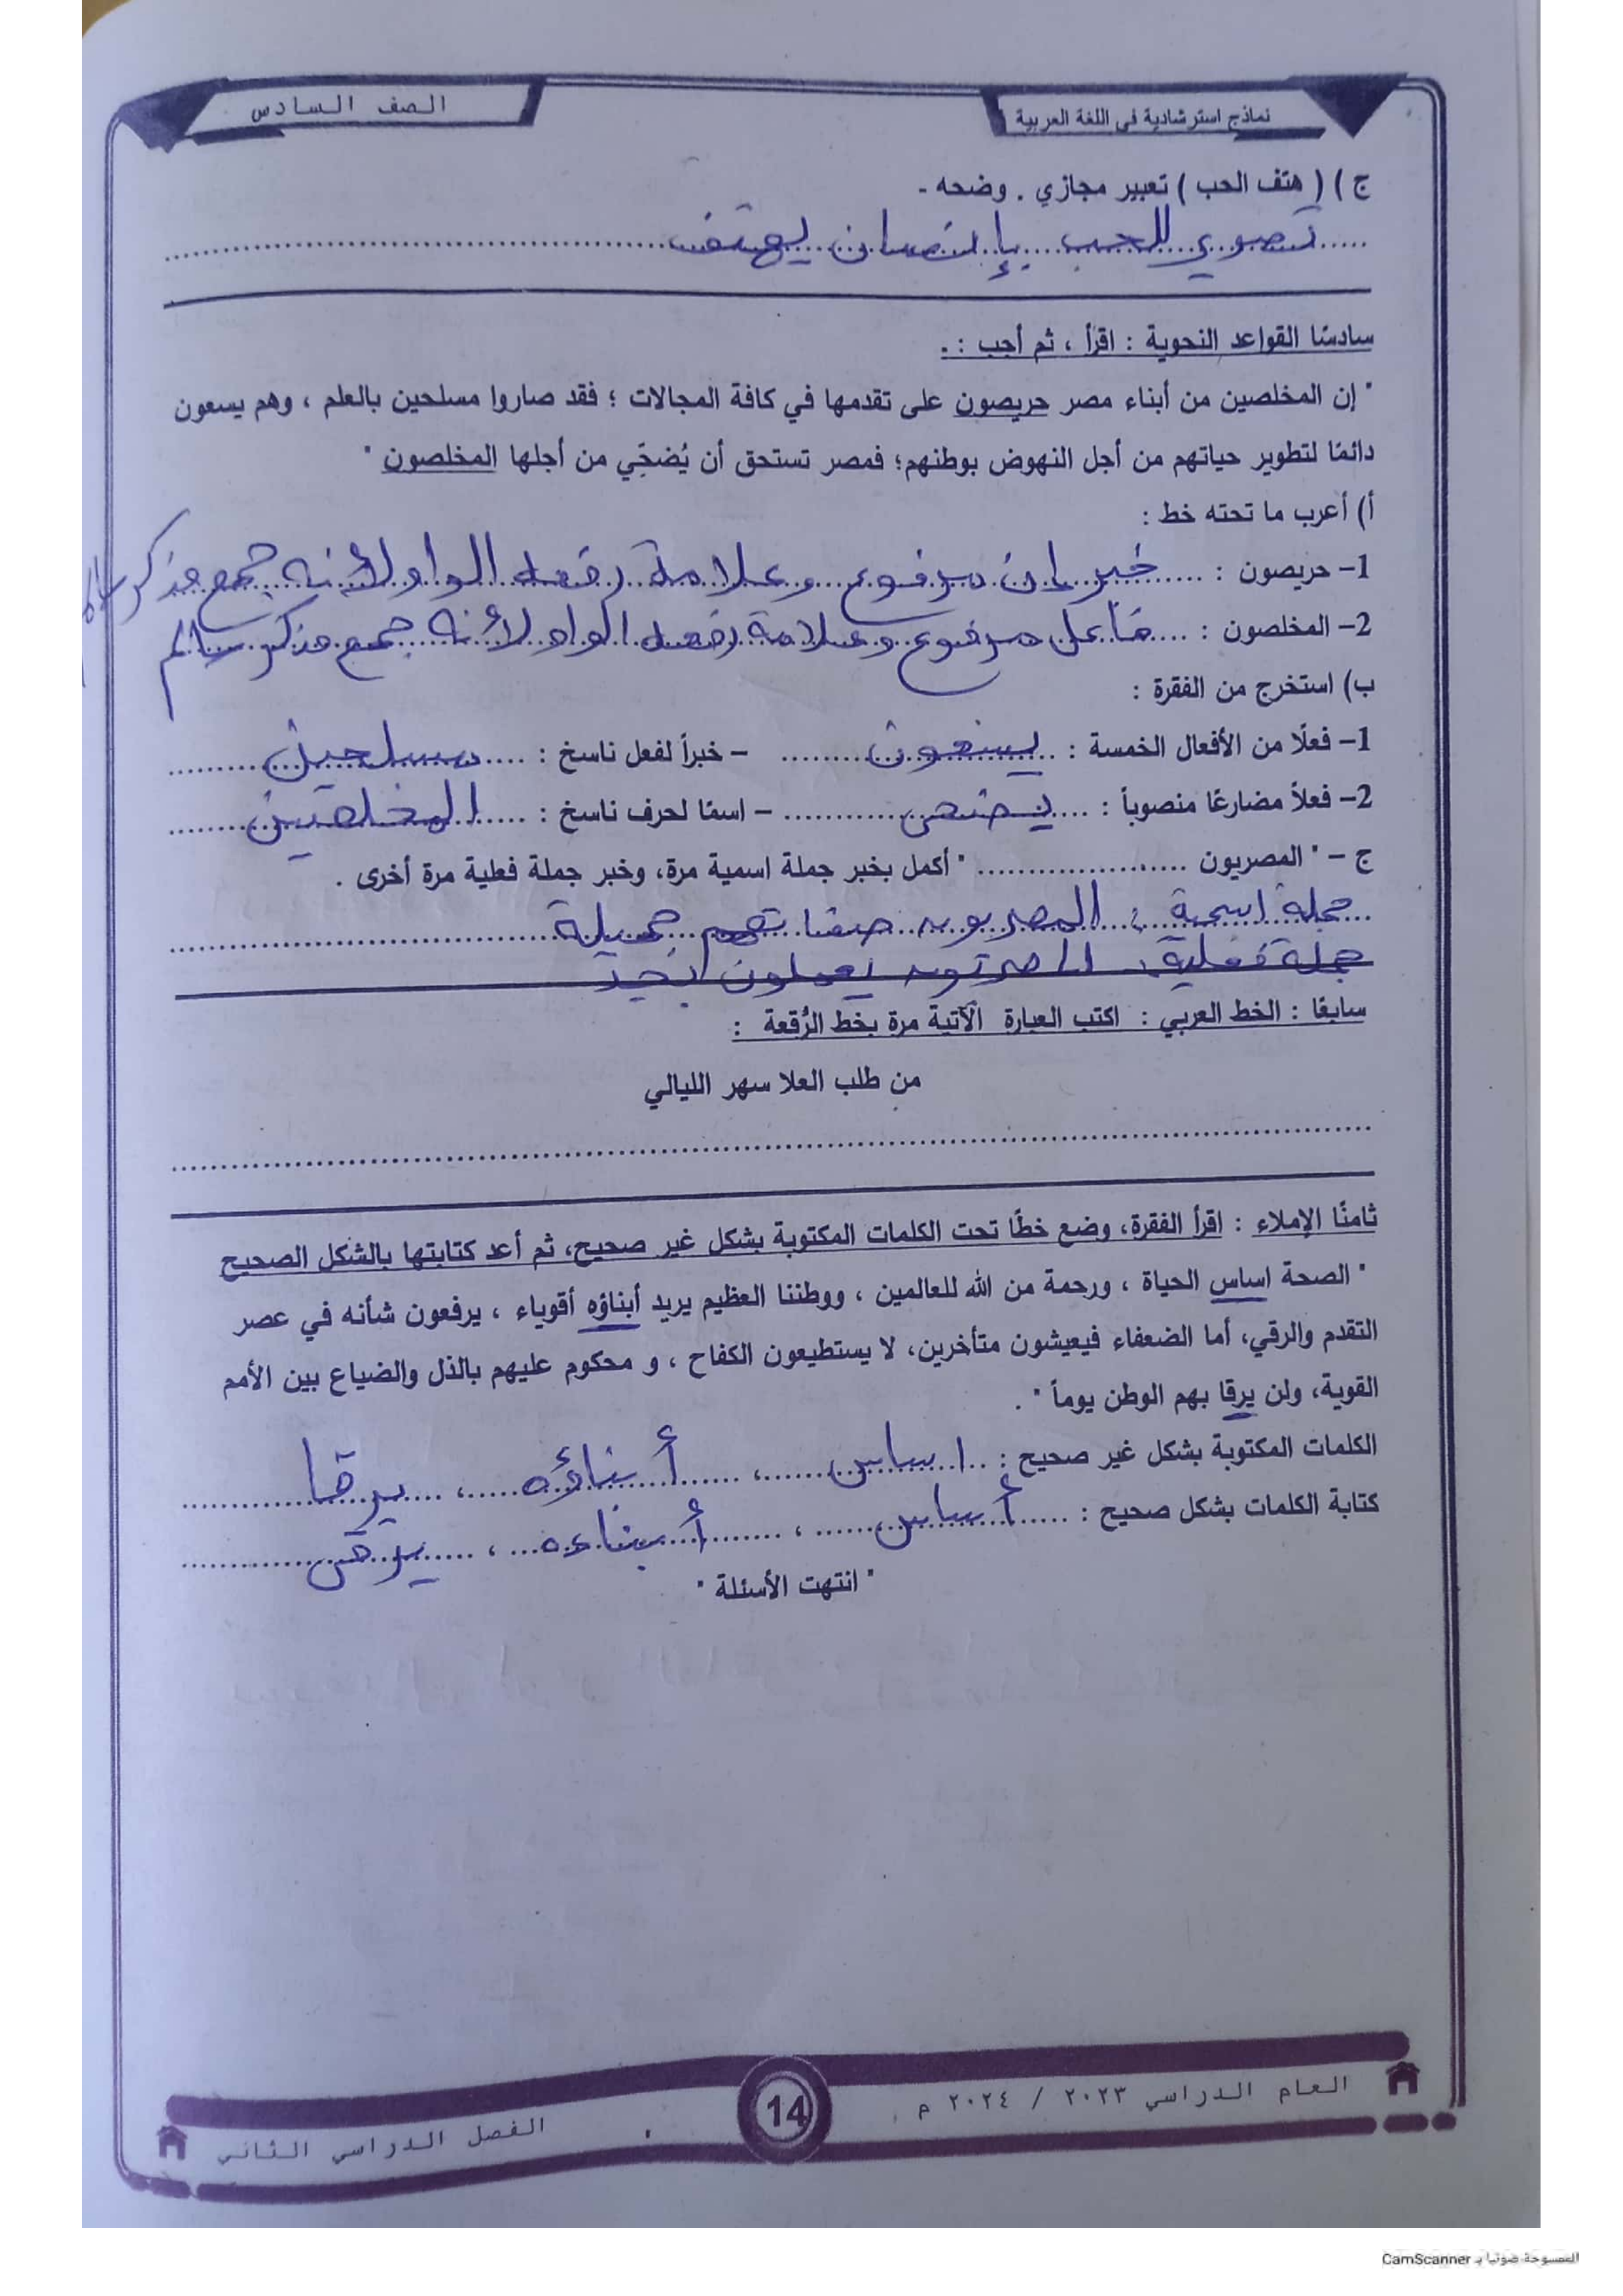 الصف السادس
نماذج استرشادية في اللغة العربية
ج ) ( هتف الحب ) تعبير مجازي . وضحه -
تصوي للحب بإنسان يهتف
سادسًا القواعد النحوية : اقرأ ، ثم أجب : .
" إن المخلصين من أبناء مصر حريصون على تقدمها في كافة المجالات ؛ فقد صاروا مسلحين بالعلم ، وهم يسعون
دائمًا لتطوير حياتهم من أجل النهوض بوطنهم؛ فمصر تستحق أن يُضحّي من أجلها المخلصون "
أ) أعرب ما تحته خط :
1- حريصون : خبر إن مرفوع وعلامة رفعه الواو لأنه جمع مذكر سالم
2- المخلصون : فاعل مرفوع وعلامة رفعه الواو لأنه جمع مذكر سالم
ب) استخرج من الفقرة :
1- فعلًا من الأفعال الخمسة : يسعون - خبراً لفعل ناسخ : مسلحين
2- فعلاً مضارعًا منصوباً : يضحى - اسمًا لحرف ناسخ : المخلصين
ج - " المصريون .................... " أكمل بخبر جملة اسمية مرة، وخبر جملة فعلية مرة أخرى .
جملة اسمية : المصريون صفاتهم جميلة
جملة فعلية : المصريون يعملون بجد
سابعًا : الخط العربي : اكتب العبارة الآتية مرة بخط الرُّقعة :
من طلب العلا سهر الليالي
ثامنًا الإملاء : اقرأ الفقرة، وضع خطًا تحت الكلمات المكتوبة بشكل غير صحيح، ثم أعد كتابتها بالشكل الصحيح
" الصحة اساس الحياة ، ورحمة من الله للعالمين ، ووطننا العظيم يريد أبناؤه أقوياء ، يرفعون شأنه في عصر
التقدم والرقي، أما الضعفاء فيعيشون متأخرين، لا يستطيعون الكفاح ، و محكوم عليهم بالذل والضياع بين الأمم
القوية، ولن يرقا بهم الوطن يوماً " .
الكلمات المكتوبة بشكل غير صحيح : اساس ، أبناؤه ، يرقا
كتابة الكلمات بشكل صحيح : أساس ، أبناءه ، يرقى
" انتهت الأسئلة "
العام الدراسي ٢٠٢٣ / ٢٠٢٤ م
14
الفصل الدراسي الثاني
الممسوحة ضوئيا بـ CamScanner